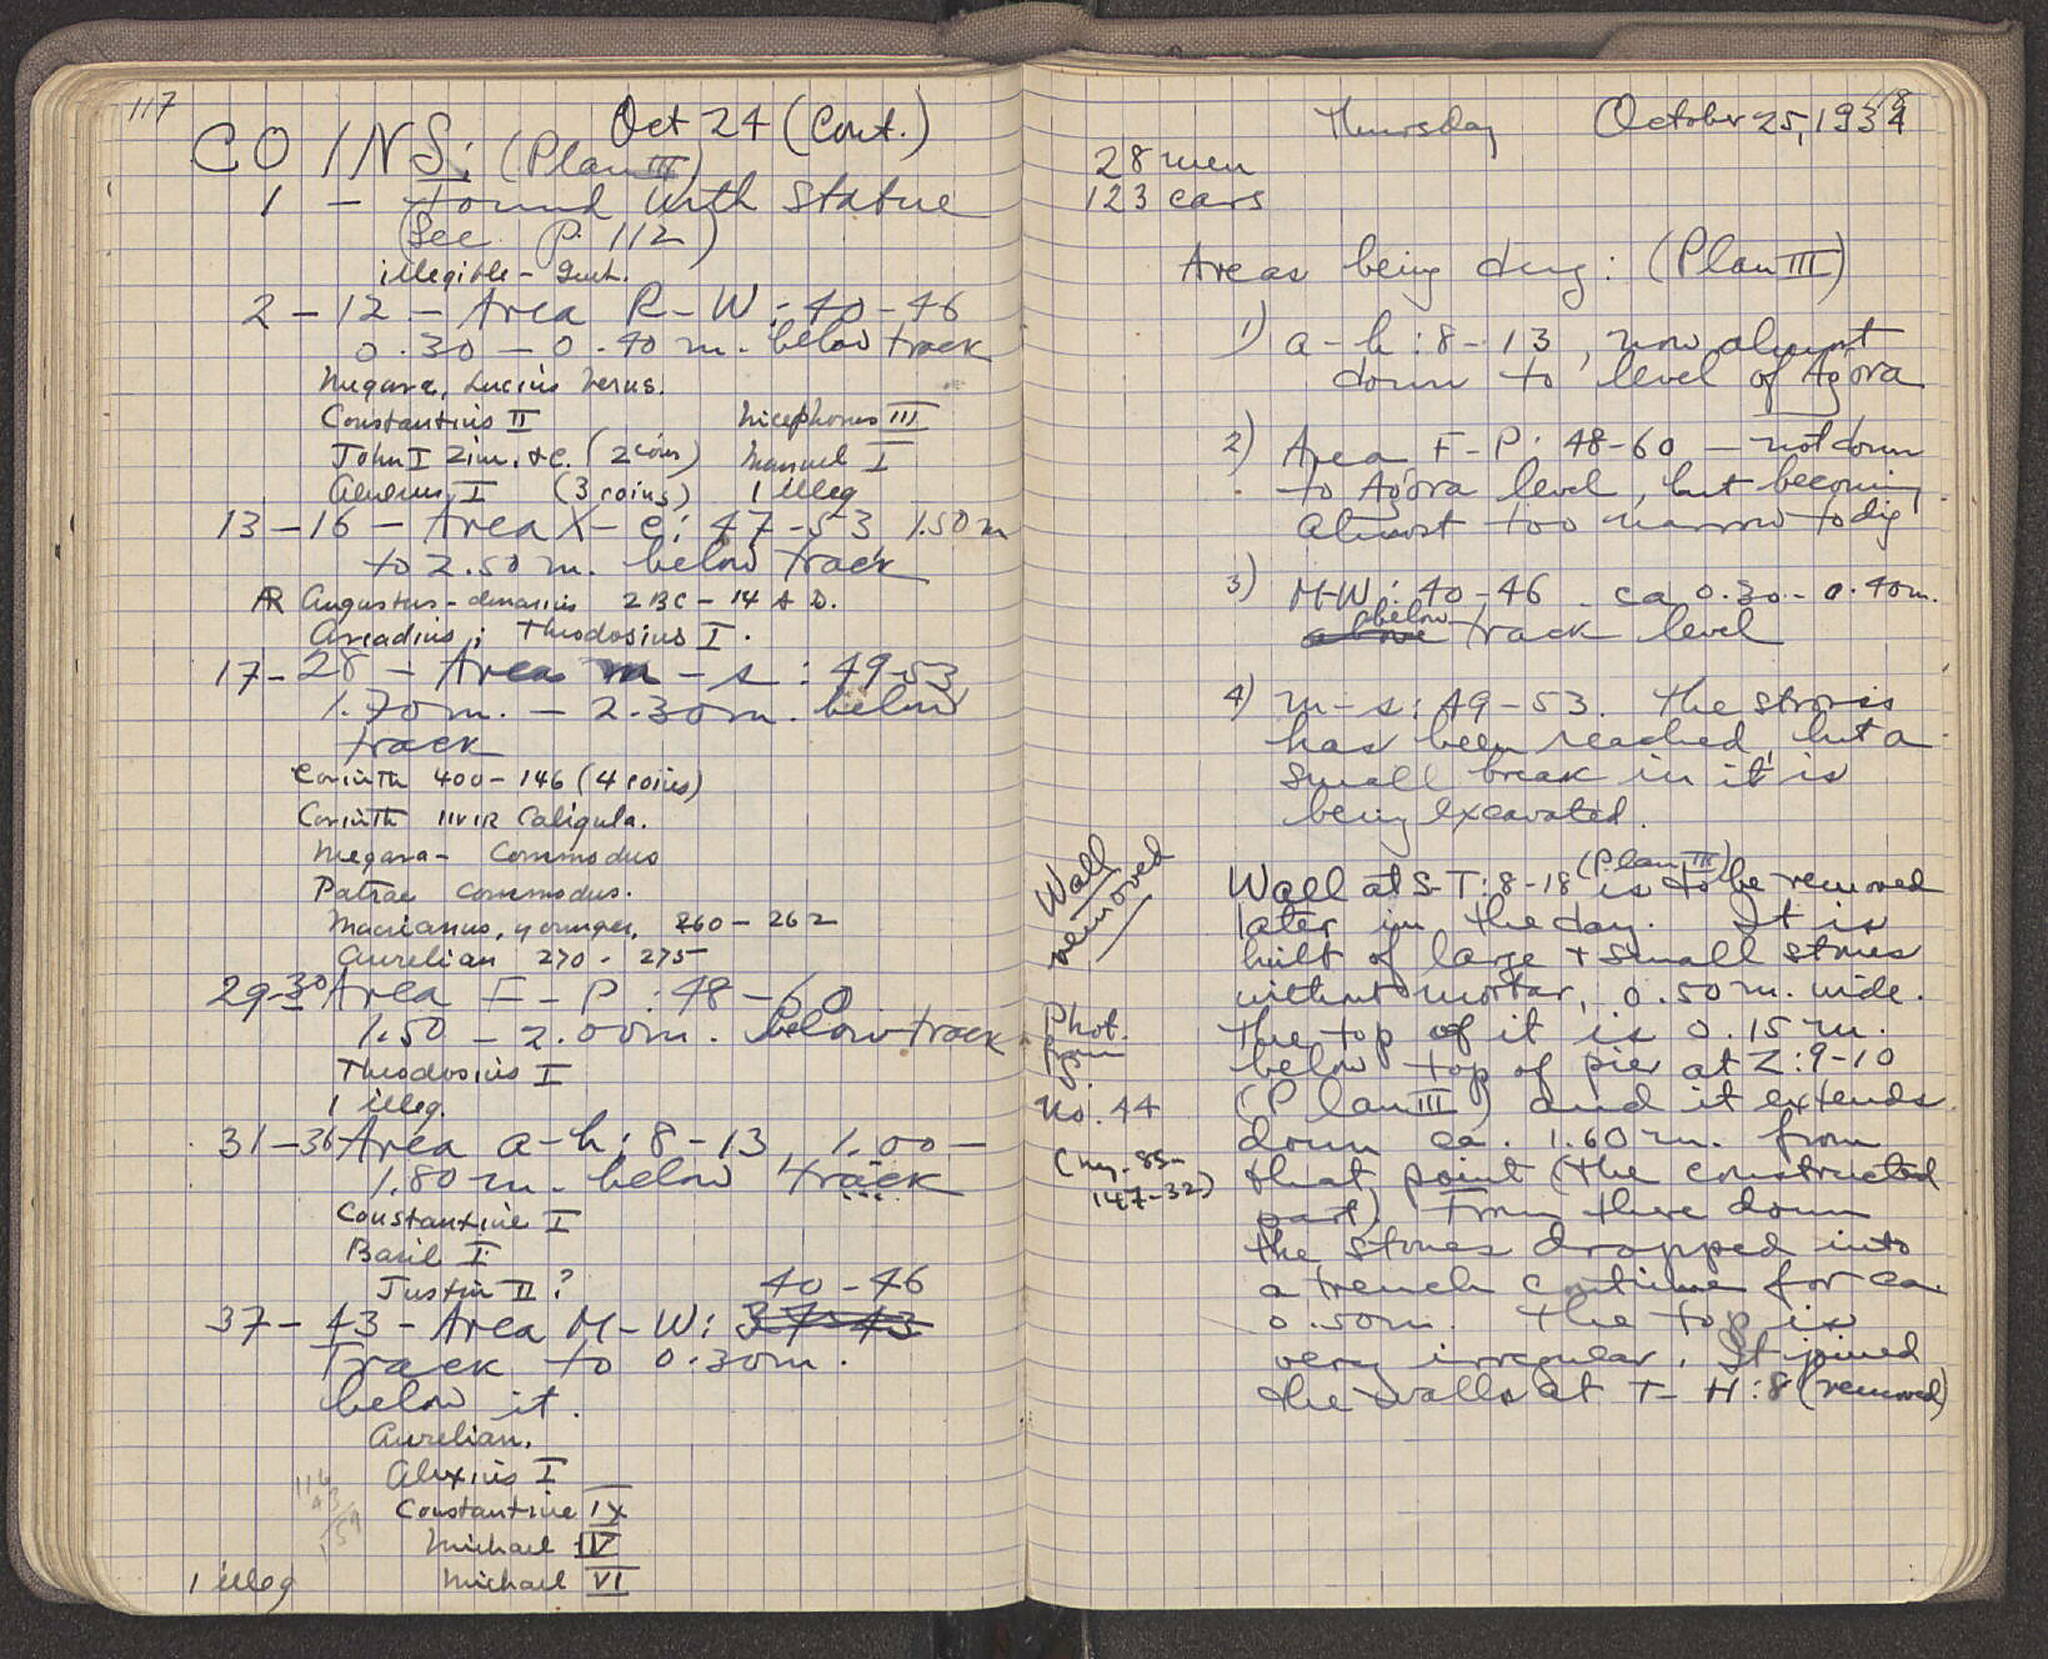 117
Oct 24 (Cont.)
COINS: (Plan III)
1 - Found with statue
(See p. 112)
illegible - 
2-12 - Area R-W: 40-46
0.30 - 0.40 m. below track
Megara, Lucius Verus.
Constantius II Nicephorus III
John I Zim. etc. (2 coins) Manuel I
Alexius I (3 coins) 1 illeg
13-16 - Area X-e: 47-53 1.50 m
to 2.50 m. below track
AR Augustus - denarius 2 BC - 14 A D.
Arcadius; Theodosius I.
17-28 - Area m-s: 49-53
1.70 m. - 2.30 m. below
track
Corinth 400-146 (4 coins)
Corinth IIVIR Caligula.
Megara - Commodus
Patrae Commodus.
Macrianus, younger, 260-262
Aurelian 270-275
29-30 Area F-P: 48-60
1.50 - 2.00 m. below track
Theodosius I
1 illeg.
31-36 Area a-h: 8-13, 1.00 -
1.80 m. below track
Constantine I
Basil I
Justin II?
40-46
37-43 - Area M-W: 37-43
Track to 0.30 m.
below it.
Aurelian.
Alexius I
Constantine IX
Michael IV
1 illeg Michael VI
116
43
159
118
Thursday October 25, 1934
28 men
123 cars
Areas being dug: (Plan III)
1) a-h: 8-13, now almost
down to level of Agora
2) Area F-P: 48-60 - not down
to Agora level, but becoming
almost too narrow to dig
3) M-W: 40-46 - ca 0.30 - 0.40 m.
below
above track level
4) m-s: 49-53. The strosis
has been reached, but a
small break in it is
being excavated.
Wall
removed
(Plan III)
Wall at S-T: 8-18 is to be removed
later in the day. It is
built of large + small stones
without mortar, 0.50 m. wide.
Phot.
from
The top of it is 0.15 m.
below top of pier at Z: 9-10
No. 44
(Plan III) and it extends
down ca. 1.60 m. from
(neg. 85-
147-32)
that point (the constructed
part). From there down
the stones dropped into
a trench continue for ca.
0.50 m. The top is
very irregular. It joined
the walls at T-H: 8 (removed)